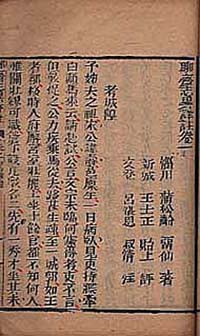 聊齋志異評註卷一
淄川 蒲松齡 留仙 著
新城 王士正 貽上 評
文登 呂湛恩 叔清 註
考城隍
予姊夫之祖宋公諱燾邑廩生一日病臥見吏持牒牽
白顛馬來云請赴試公言文宗未臨何遽得考吏不言
但敦促之公力疾乘馬從去路甚生疎至一城郭如王
者都移時入府廨宮室壯麗上坐十餘官都不知何人
惟關壯繆可識簷下設几墩各二先有一秀才坐其末